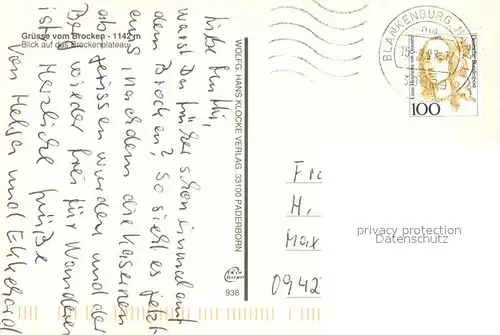 Grüsse vom Brocken - 1142 m
Blick auf das Brockenplateau
Liebe
warst Du früher schon einmal auf
dem Brocken? So sieht es jetzt
aus, nachdem die Kasernen
abgerissen wurden und der
Berg wieder frei für Wanderer
ist. Herzliche Grüße
von Helga und Ekkehard
WOLFG. HANS KLOCKE VERLAG, 33100 PADERBORN
938
BLANKENBURG, HARZ
Deutsche Bundespost
100
Fra
H.
Max
0942
privacy protection
Datenschutz